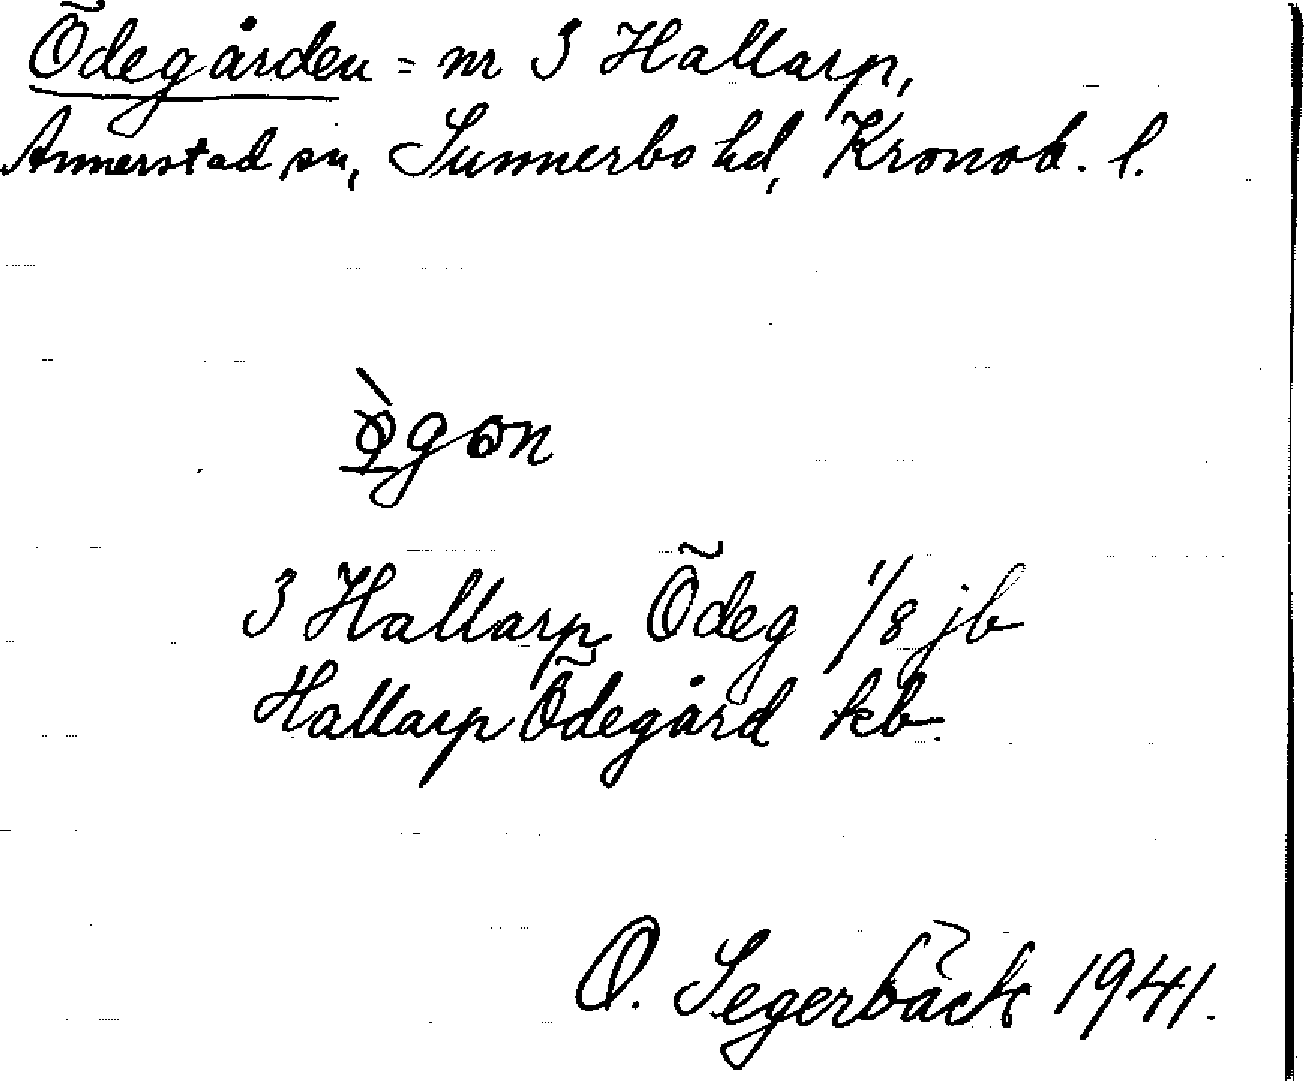 Ödegården = nr 3 Hallarp,
Annerstad sn, Sunnerbo hd, Kronob. l.
3 Hallarp Ödeg 1/8 jb
Hallarp Ödegård kb.
O. Segerbäck 1941.